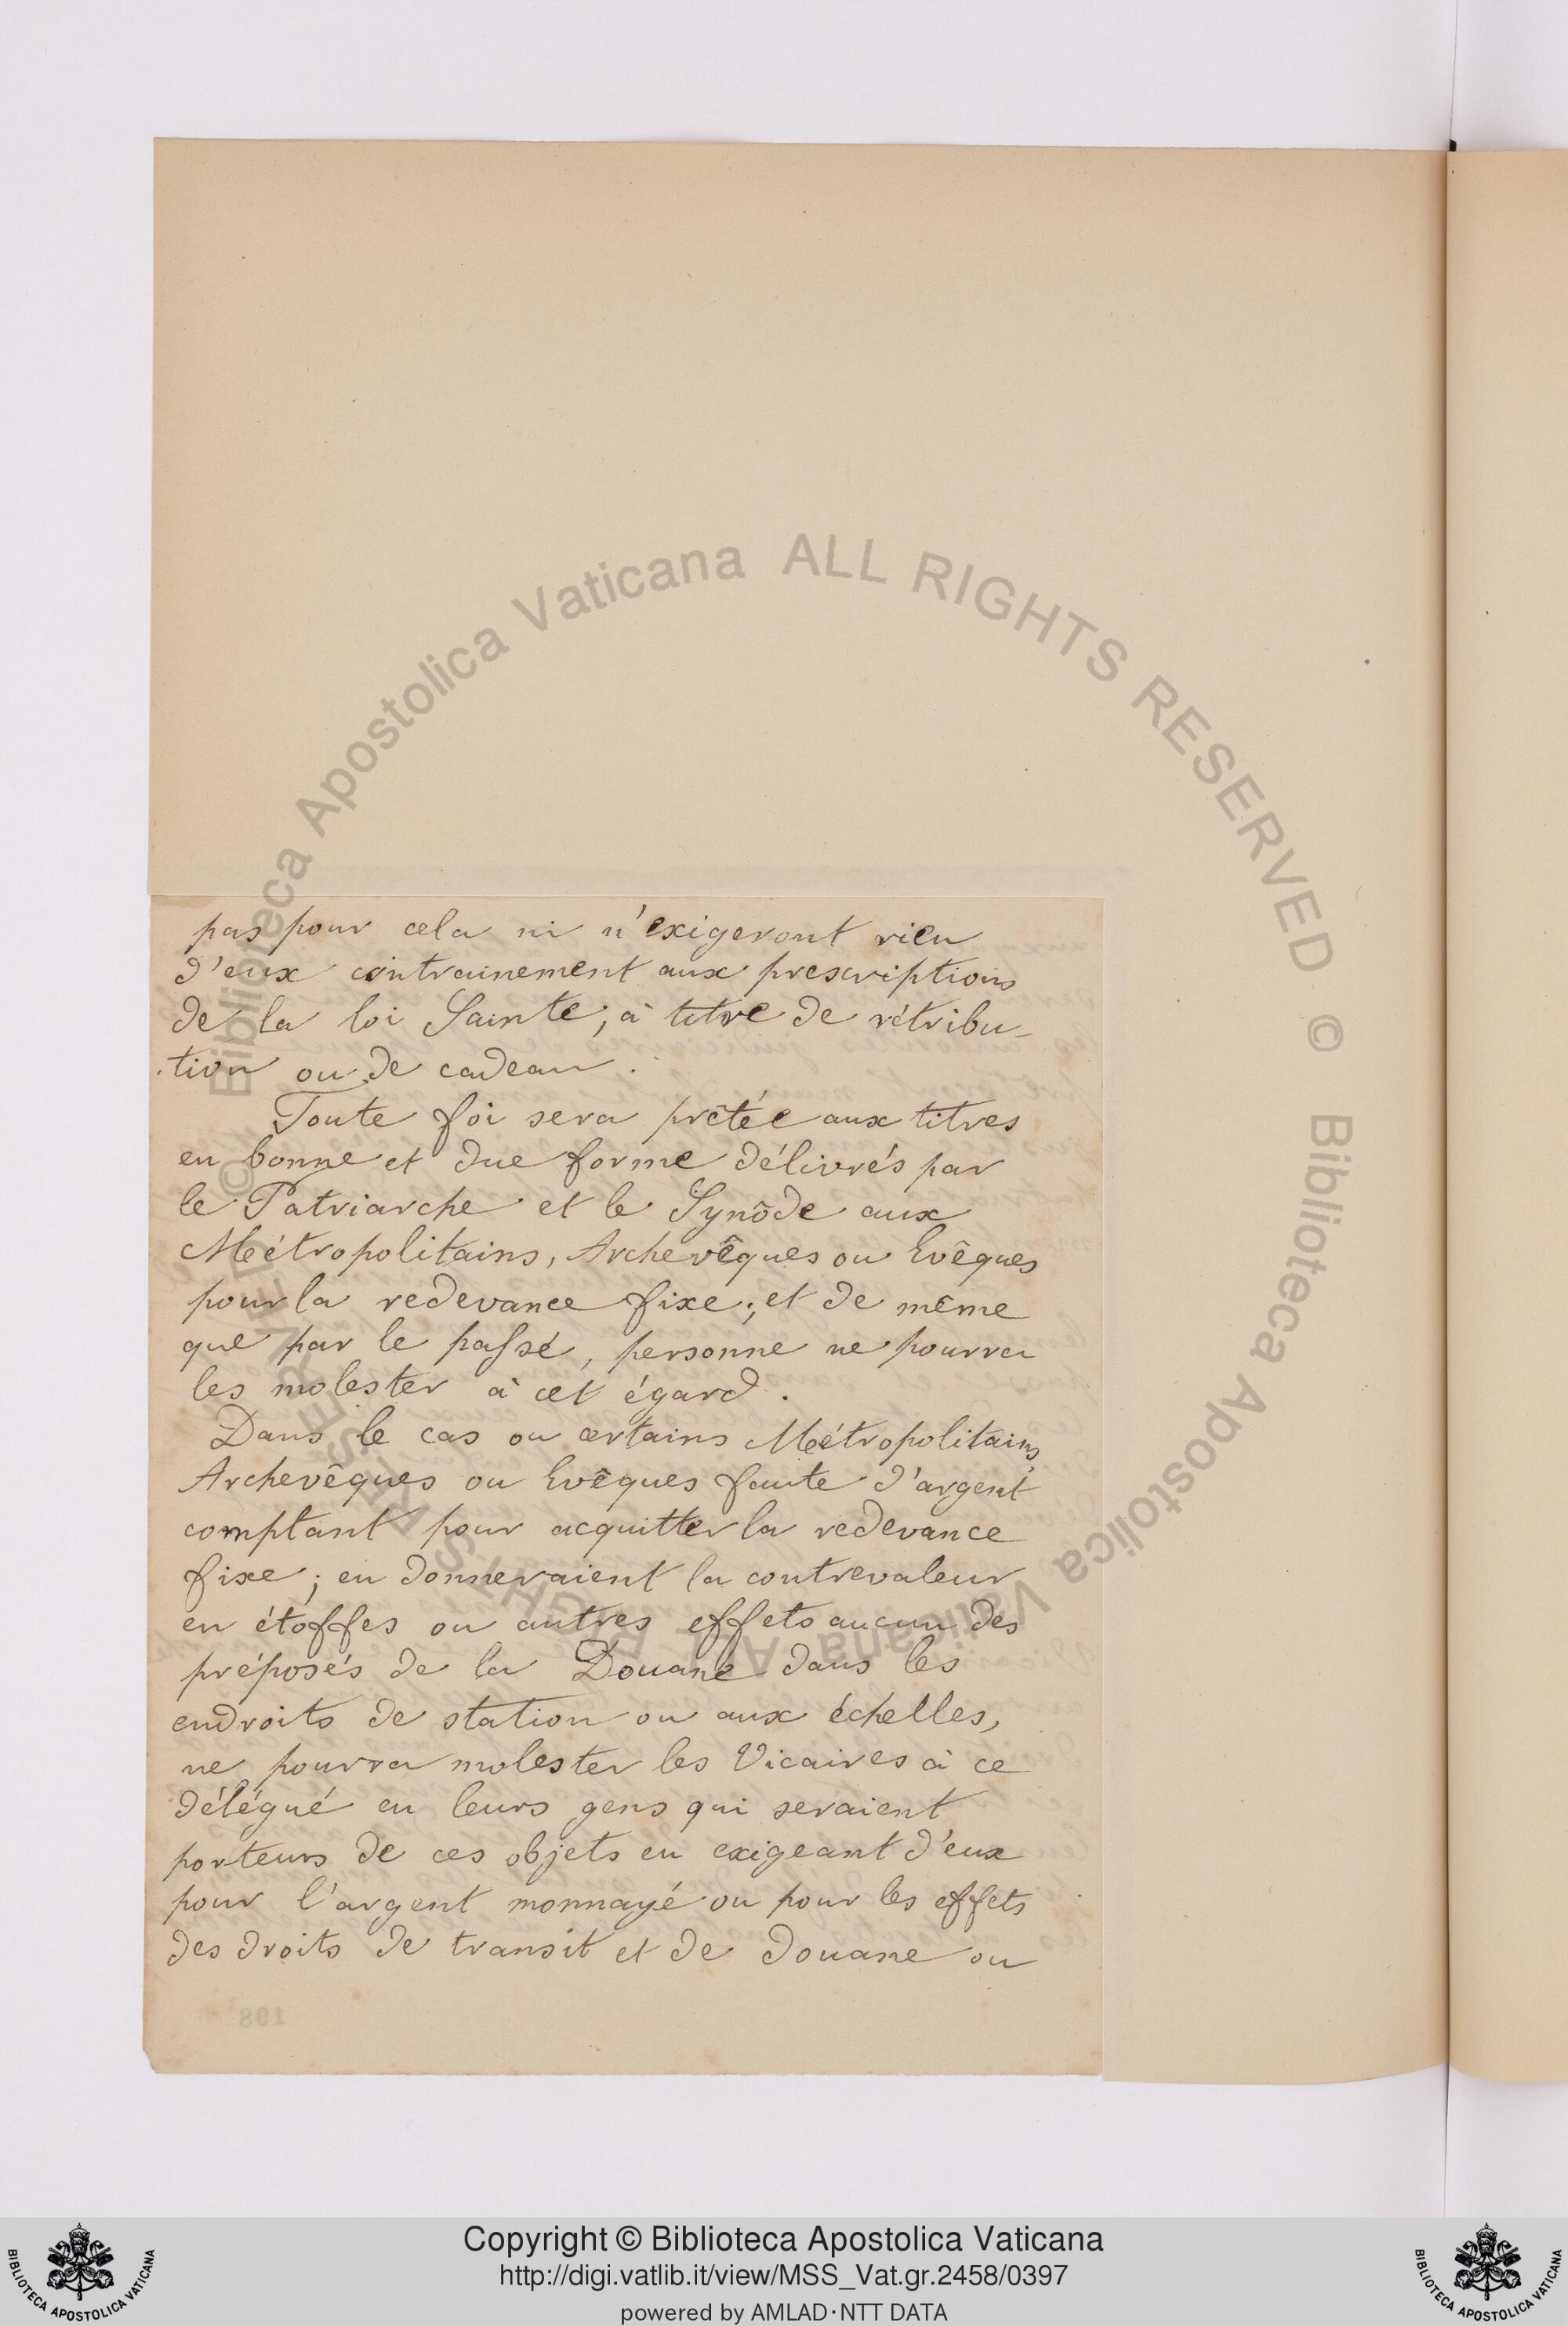 pas pour cela ni n'exigeront rien
d'eux contrainement aux prescriptions
de la loi Sainte, à titre de rétribu-
tion ou de cadeau.
Toute foi sera prêtée aux titres
en bonne et due forme délivrés par
le Patriarche et le Synôde aux
Métropolitains, Archevêques ou Evêques
pour la redevance fixe; et de même
que par le passé, personne ne pourra
les molester à cet égard.
Dans le cas ou certains Métropolitains,
Archevêques ou Evêques faute d'argent
comptant pour acquitter la redevance
fixe; en donneraient la contrevaleur
en étoffes ou autres effets aucun des
préposés de la Douane dans les
endroits de station ou aux échelles,
ne pourra molester les Vicaires à ce
délégué en leurs gens qui seraient
porteurs de ces objets en exigeant d'eux
pour l'argent monnayé ou pour les effets
des droits de transit et de douane ou
198
© Biblioteca Apostolica Vaticana ALL RIGHTS RESERVED © Biblioteca Apostolica Vaticana ALL RIGHTS RESERVED
Copyright © Biblioteca Apostolica Vaticana
http://digi.vatlib.it/view/MSS_Vat.gr.2458/0397
powered by AMLAD·NTT DATA
BIBLIOTECA APOSTOLICA VATICANA
BIBLIOTECA APOSTOLICA VATICANA